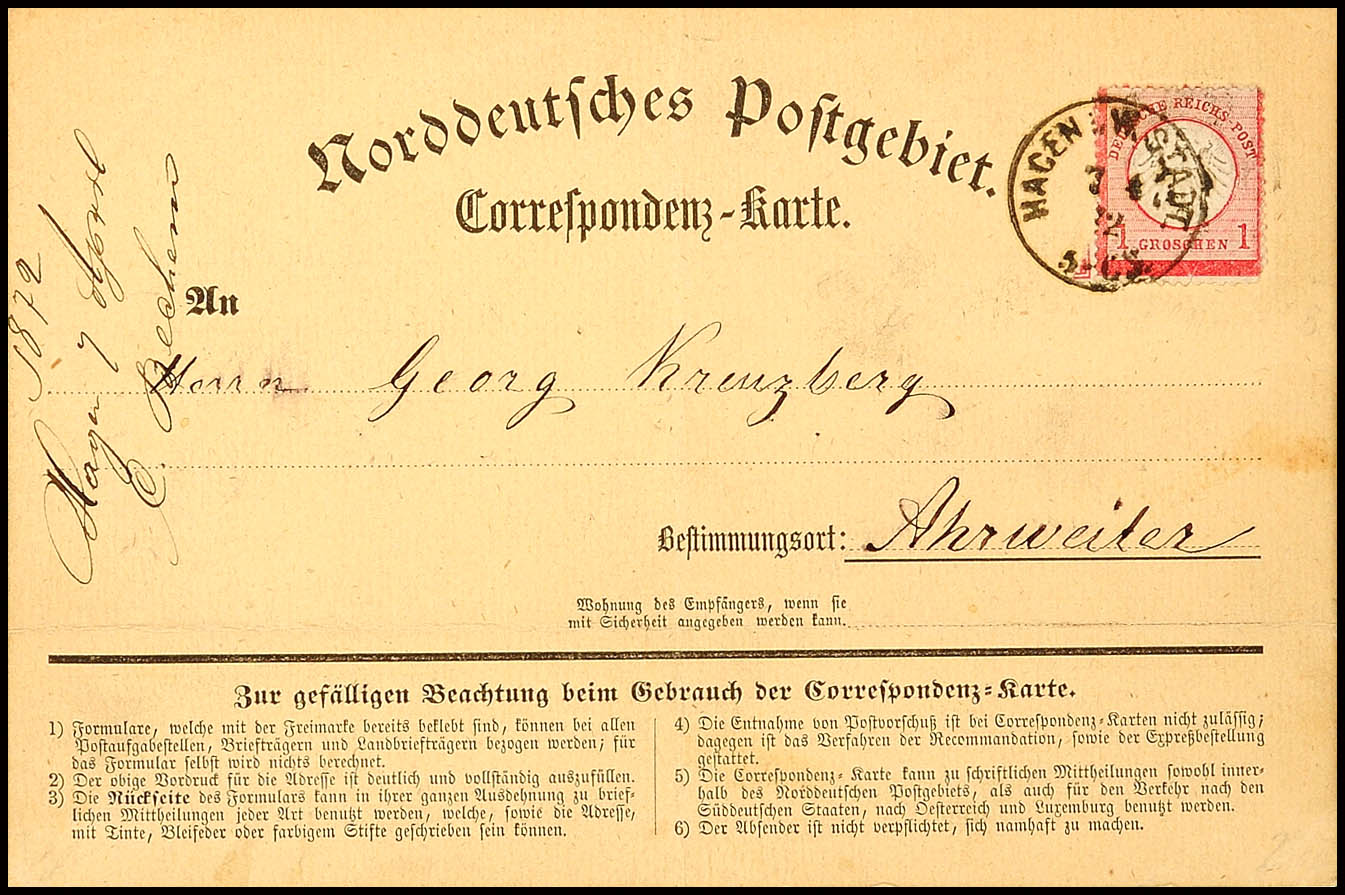 Norddeutsches Postgebiet.
Correspondenz-Karte.
DEUTSCHE REICHS-POST
1 GROSCHEN 1
HAGEN i.W. STADT
72
1872
Hagen 7
An
Herrn Georg Kreuzberg
Bestimmungsort: Ahrweiler
Wohnung des Empfängers, wenn sie
mit Sicherheit angegeben werden kann.
Zur gefälligen Beachtung beim Gebrauch der Correspondenz-Karte.
1) Formulare, welche mit der Freimarke bereits beklebt sind, können bei allen
Postaufgabestellen, Briefträgern und Landbriefträgern bezogen werden; für
das Formular selbst wird nichts berechnet.
2) Der obige Vordruck für die Adresse ist deutlich und vollständig auszufüllen.
3) Die Rückseite des Formulars kann in ihrer ganzen Ausdehnung zu brief-
lichen Mittheilungen jeder Art benutzt werden, welche, sowie die Adresse,
mit Tinte, Bleifeder oder farbigem Stifte geschrieben sein können.
4) Die Entnahme von Postvorschuß ist bei Correspondenz-Karten nicht zulässig;
dagegen ist das Verfahren der Recommandation, sowie der Expreßbestellung
gestattet.
5) Die Correspondenz-Karte kann zu schriftlichen Mittheilungen sowohl inner-
halb des Norddeutschen Postgebiets, als auch für den Verkehr nach den
Süddeutschen Staaten, nach Oesterreich und Luxemburg benutzt werden.
6) Der Absender ist nicht verpflichtet, sich namhaft zu machen.